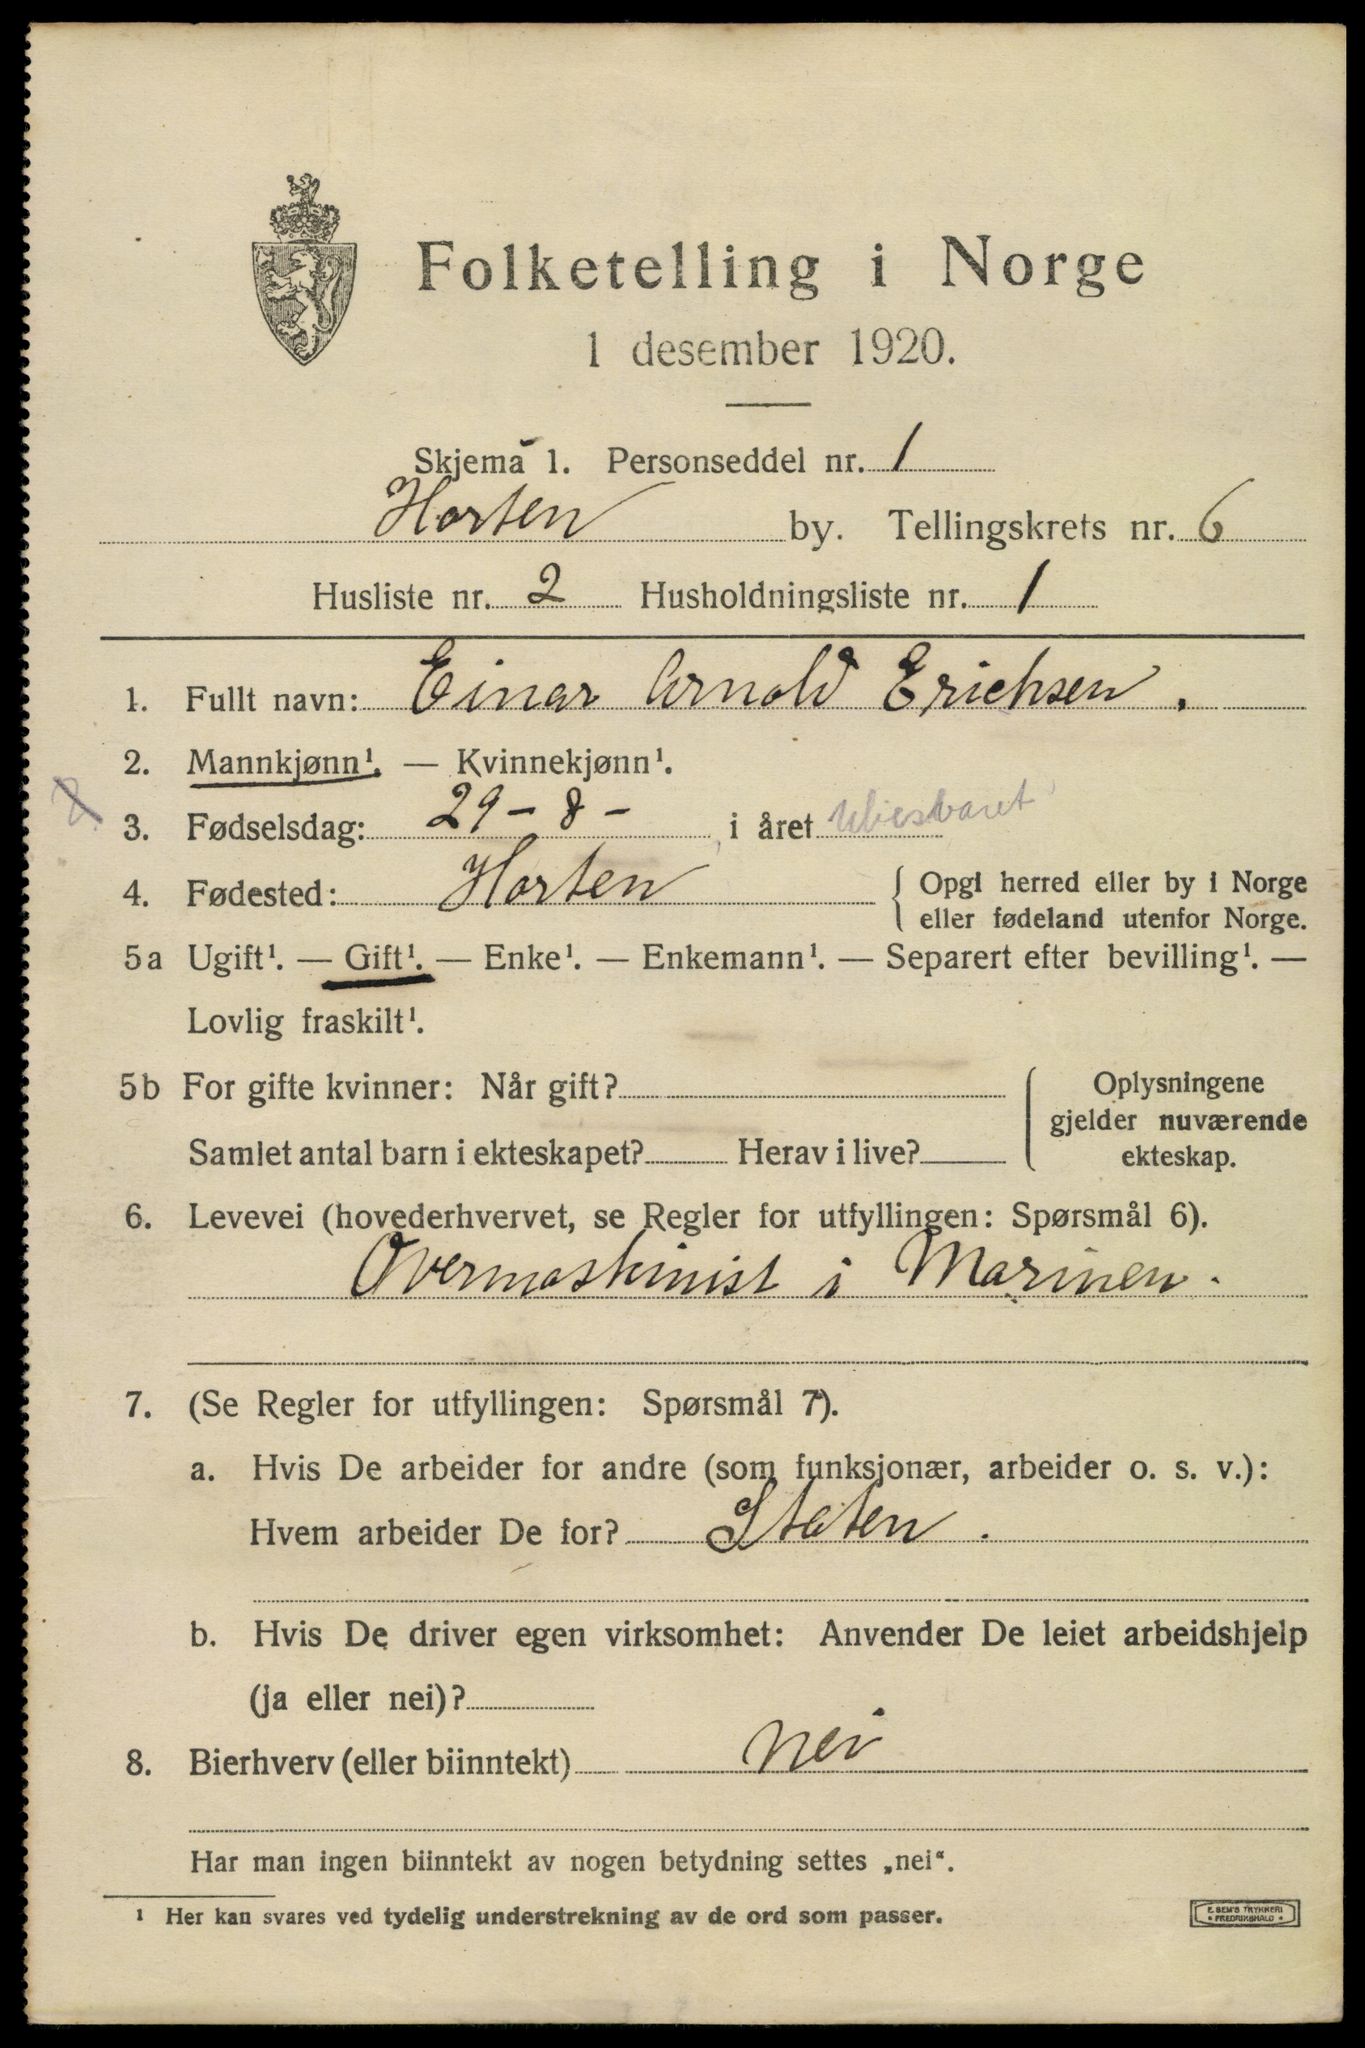 Folketelling i Norge
1 desember 1920.
Skjema 1. Personseddel nr. 1
Horten by. Tellingskrets nr. 6
Husliste nr. 2 Husholdningsliste nr. 1
1. Fullt navn: Einar Arnold Erichsen.
2. Mannkjønn¹. — Kvinnekjønn¹.
3. Fødselsdag: 29 – 8 – i året Ubesvaret
4. Fødested: Horten { Opgi herred eller by i Norge
eller fødeland utenfor Norge.
5a Ugift¹. — Gift¹. — Enke¹. — Enkemann¹. — Separert efter bevilling¹. —
Lovlig fraskilt¹.
5b For gifte kvinner: Når gift? Oplysningene
gjelder nuværende
Samlet antal barn i ekteskapet? Herav i live? ekteskap.
6. Levevei (hovederhvervet, se Regler for utfyllingen: Spørsmål 6).
Overmaskinist i Marinen.
7. (Se Regler for utfyllingen: Spørsmål 7).
a. Hvis De arbeider for andre (som funksjonær, arbeider o. s. v.):
Hvem arbeider De for? Staten.
b. Hvis De driver egen virksomhet: Anvender De leiet arbeidshjelp
(ja eller nei)?
8. Bierhverv (eller biinntekt) nei
Har man ingen biinntekt av nogen betydning settes „nei“.
¹ Her kan svares ved tydelig understrekning av de ord som passer.
E. SEM'S TRYKKERI
• FREDRIKSHALD •